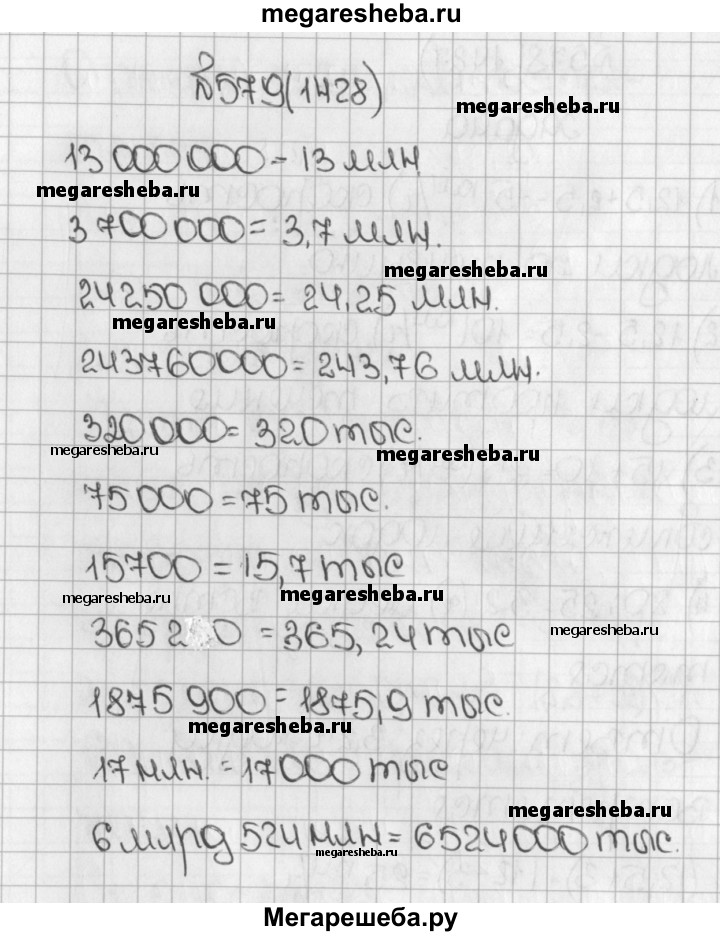 megaresheba.ru
№579(1428)
megaresheba.ru
13 000 000 = 13 млн
megaresheba.ru
3 700 000 = 3,7 млн.
megaresheba.ru
24250 000 = 24,25 млн.
megaresheba.ru
243760000 = 243,76 млн.
320 000 = 320 тыс.
megaresheba.ru
megaresheba.ru
75 000 = 75 тыс.
15700 = 15,7 тыс
megaresheba.ru
megaresheba.ru
365 2 0 = 365,24 тыс
megaresheba.ru
1875 900 = 1875,9 тыс.
megaresheba.ru
17 млн. = 17000 тыс
megaresheba.ru
6 млрд 524 млн = 6524000 тыс.
megaresheba.ru
Мегарешеба.ру